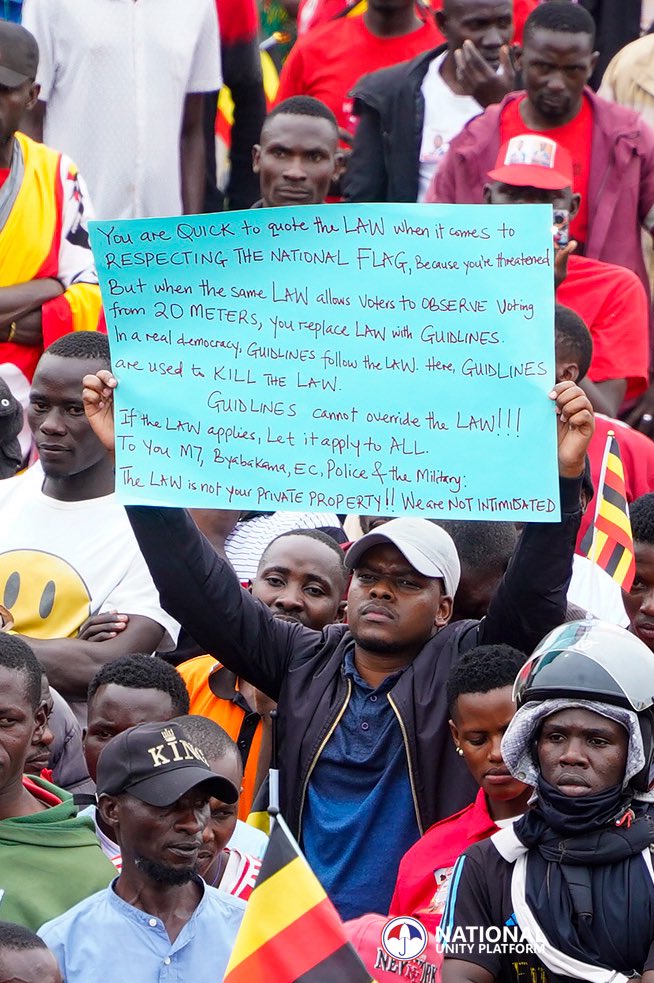 You are QUICK to quote the LAW when it comes to
RESPECTING THE NATIONAL FLAG, Because you're threatened
But when the same LAW allows Voters to OBSERVE Voting
from 20 METERS, you replace LAW with GUIDLINES.
In a real democracy, GUIDLINES follow the LAW. Here, GUIDLINES
are used to KILL THE LAW.
GUIDLINES cannot override the LAW!!!
If the LAW applies, Let it apply to ALL.
To You M7, Byabakama, EC, Police & the Military:
The LAW is not your PRIVATE PROPERTY!! We are NOT INTIMIDATED
KINGS
NEW YORK
NATIONAL
UNITY PLATFORM